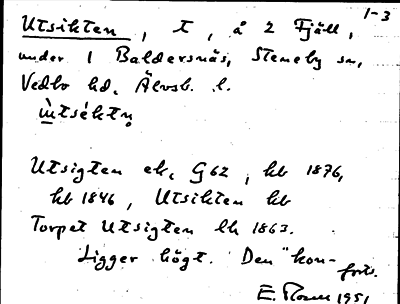 1-3
Utsikten, t, å 2 Fjäll,
under 1 Baldersnäs, Steneby sn,
Vedbo hd, Älvsb. l.
ek. G62, kb 1876,
Utsigten
kb 1846, Utsikten kb
Torpet Utsigten lh 1863.
Ligger högt. Den "kon-
forts.
E. Rosen 1951